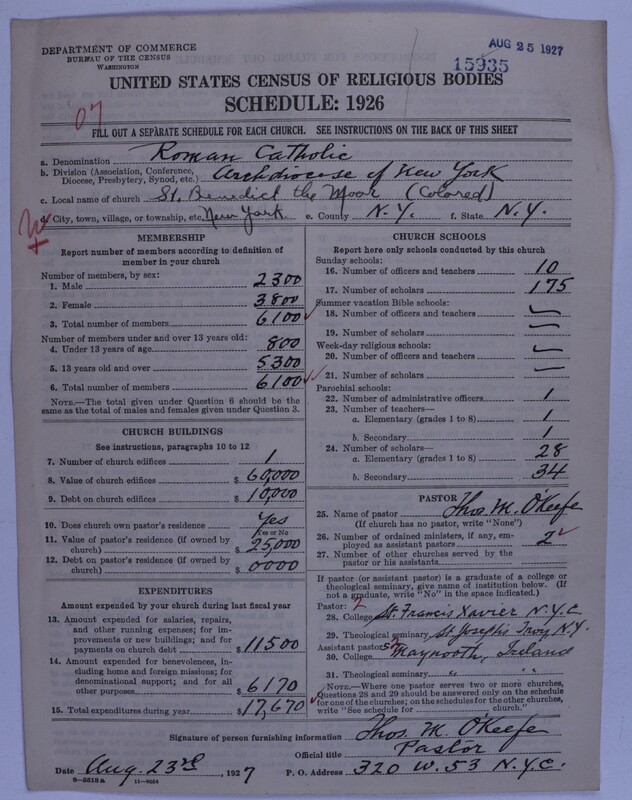 DEPARTMENT OF COMMERCE
BUREAU OF THE CENSUS
WASHINGTON
AUG 25 1927
15935
UNITED STATES CENSUS OF RELIGIOUS BODIES
SCHEDULE: 1926
07
FILL OUT A SEPARATE SCHEDULE FOR EACH CHURCH. SEE INSTRUCTIONS ON THE BACK OF THIS SHEET
a. Denomination Roman Catholic
b. Division (Association, Conference, Diocese, Presbytery, Synod, etc.) Archdiocese of New York
c. Local name of church St. Benedict the Moor (Colored)
d. City, town, village, or township, etc. New York. e. County N.Y. f. State N.Y.
MEMBERSHIP
Report number of members according to definition of
member in your church
Number of members, by sex:
1. Male 2300
2. Female 3800
3. Total number of members 6100
Number of members under and over 13 years old:
4. Under 13 years of age 800
5. 13 years old and over 5300
6. Total number of members 6100
NOTE.—The total given under Question 6 should be
same as the total of males and females given under Question 3.
CHURCH BUILDINGS
See instructions, paragraphs 10 to 12
7. Number of church edifices 1
8. Value of church edifices $ 60,000
9. Debt on church edifices $ 10,000
10. Does church own pastor's residence Yes
Yes or No
11. Value of pastor's residence (if owned by
church) $ 25,000
12. Debt on pastor's residence (if owned by
church) $ 0000
EXPENDITURES
Amount expended by your church during last fiscal year
13. Amount expended for salaries, repairs,
and other running expenses; for im-
provements or new buildings; and for
payments on church debt $ 11500
14. Amount expended for benevolences, in-
cluding home and foreign missions; for
denominational support; and for all
other purposes $ 6170
15. Total expenditures during year $ 17,670
CHURCH SCHOOLS
Report here only schools conducted by this church
Sunday schools:
16. Number of officers and teachers 10
17. Number of scholars 175
Summer vacation Bible schools:
18. Number of officers and teachers
19. Number of scholars —
Week-day religious schools:
20. Number of officers and teachers
21. Number of scholars —
Parochial schools:
22. Number of administrative officers 1
23. Number of teachers—
a. Elementary (grades 1 to 8) 1
b. Secondary 1
24. Number of scholars—
a. Elementary (grades 1 to 8) 28
b. Secondary 34
PASTOR
25. Name of pastor Thos. M. O'Keefe
(If church has no pastor, write "None")
26. Number of ordained ministers, if any, em-
ployed as assistant pastors 2
27. Number of other churches served by the
pastor or his assistants
If pastor (or assistant pastor) is a graduate of a college or
theological seminary, give name of institution below. (If
not a graduate, write "No" in the space indicated.)
Pastor: 2
28. College St. Francis Xavier N.Y.C
29. Theological seminary St. Josephs Troy N.Y.
Assistant pastor:
30. College Maynooth, Ireland
31. Theological seminary " "
NOTE.—Where one pastor serves two or more churches,
Questions 28 and 29 should be answered only on the schedule
for one of the churches; on the schedules for the other churches,
write "See schedule for church."
Signature of person furnishing information Thos. M. O'Keefe
Official title Pastor
Date Aug. 23rd, 1927 P. O. Address 320 W. 53 N.Y.C.